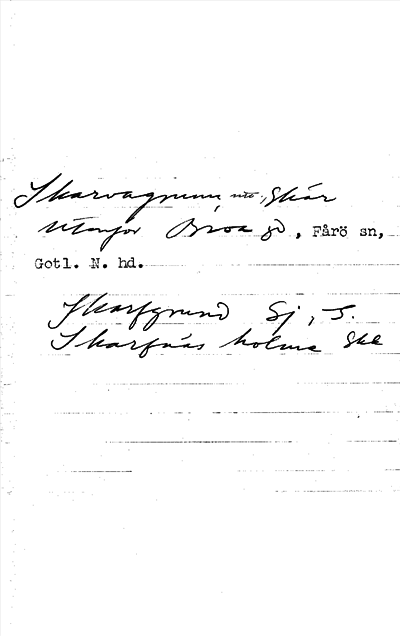 Skarvagrunn, skär
utanför Broa gd, Fårö sn,
Gotl. N. hd.
Skarfgrund Sj, S.
Skarfnäs holme Skk